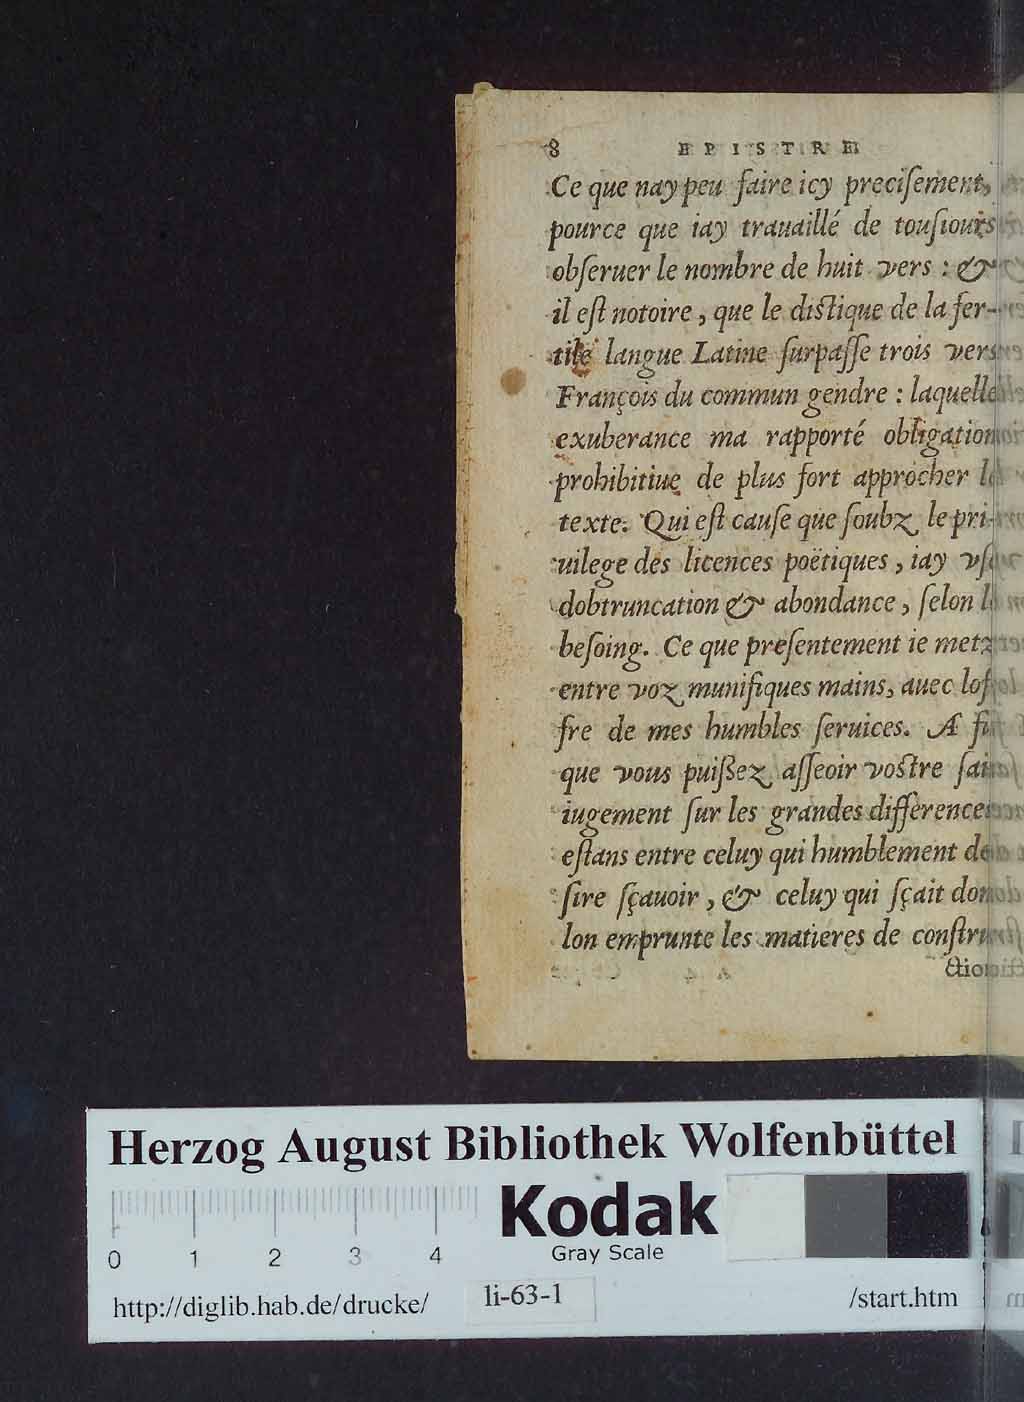 8 EPISTRE
Ce que nay peu faire icy preciſement,
pource que iay trauaillé de touſiours
obſeruer le nombre de huit vers : &
il eſt notoire , que le diſtique de la fer-
tile langue Latine ſurpaſſe trois vers
François du commun gendre : laquelle
exuberance ma rapporté obligation
prohibitiue de plus fort approcher le
texte. Qui eſt cauſe que ſoubz le pri-
uilege des licences poëtiques , iay vſe
dobtruncation & abondance , ſelon le
beſoing. Ce que preſentement ie metz
entre voz munifiques mains, auec lof
fre de mes humbles ſeruices. A fin
que vous puißez aſſeoir voſtre ſain
iugement ſur les grandes differences
eſtans entre celuy qui humblement de
ſire ſçauoir , & celuy qui ſçait dont
lon emprunte les matieres de conſtru
ction
Herzog August Bibliothek Wolfenbüttel
Kodak
Gray Scale
0 1 2 3 4
http://diglib.hab.de/drucke/ li-63-1 /start.htm